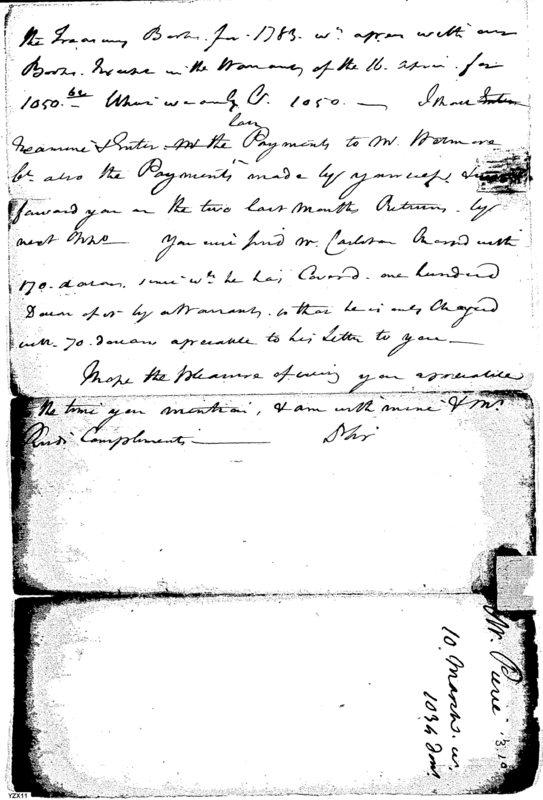 the Treasury Books for 1783. wh. agree with our
Books. Except in the Warrants of the 16. April for
1050. Where we only Cr. 1050. — I shall
Examine & Enter the Payments to Mr.
also the Payments made by yourself &
forward you on the two last Months Returns by
next You will find Mr. Carleton Charged with
170. dollars. since wh. he has one hundred
Dollars of it by a Warrant. so that he is only Charged
with 70. dollars agreeable to his Letter to you —
I hope the Pleasure of seeing you agreeable
the time you mention, & am with mine & Mrs.
Compliments — D Sir
Mr. Pierce
10 March.